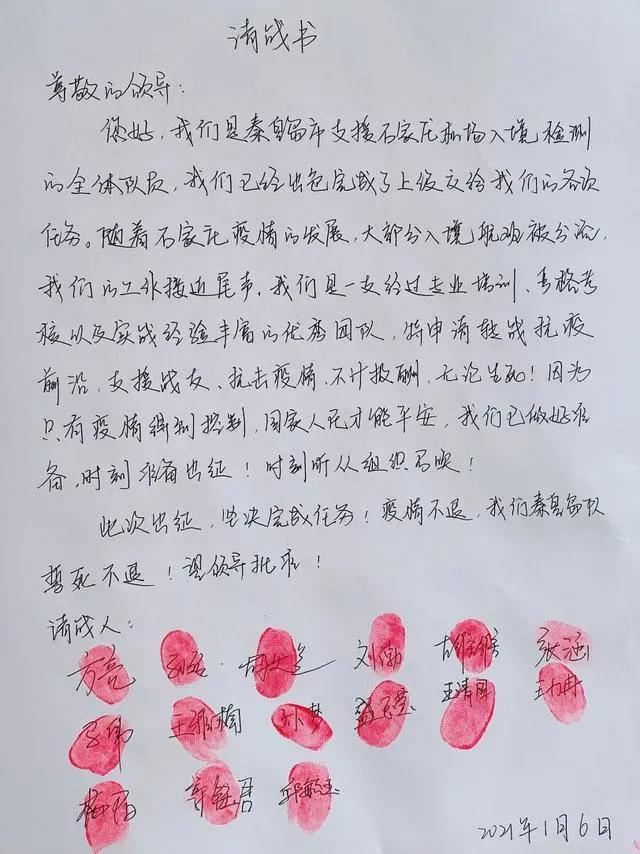 请战书
尊敬的领导：
您好，我们是秦皇岛市支援石家庄机场入境检测
的全体队员，我们已经出色完成了上级交给我们的各项
任务。随着石家庄疫情的发展，大部分入境航班被分流，
我们的工作接近尾声。我们是一支经过专业培训、严格考
核以及实战经验丰富的优秀团队，特申请转战抗疫
前沿，支援战友、抗击疫情，不计报酬，无论生死！因为
只有疫情得到控制，国家人民才能平安，我们已做好准
备，时刻准备出征！时刻听从组织召唤！
此次出征，坚决完成任务！疫情不退，我们秦皇岛队
誓死不退！望领导批准！
请战人：
方亮 刘渤 张涵
王雅楠 孙梦 王清图
2021年1月6日